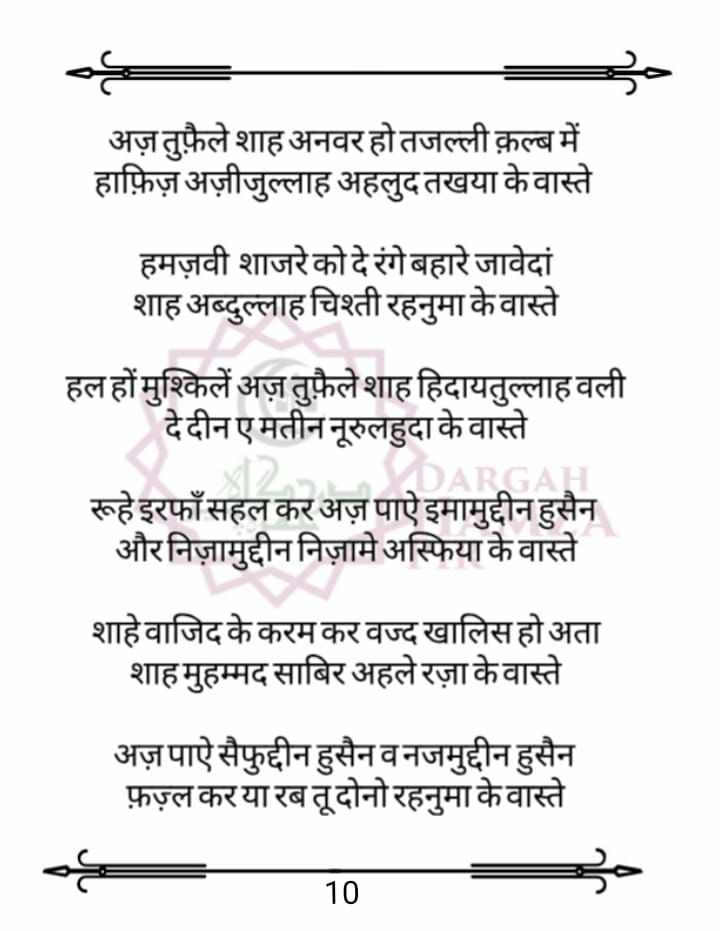 अज़ तुफ़ैले शाह अनवर हो तजल्ली क़ल्ब में
हाफ़िज़ अज़ीजुल्लाह अहलुद तखया के वास्ते
हमज़वी शाजरे को दे रंगे बहारे जावेदां
शाह अब्दुल्लाह चिश्ती रहनुमा के वास्ते
हल हों मुश्किलें अज़ तुफ़ैले शाह हिदायतुल्लाह वली
दे दीन ए मतीन नूरुलहुदा के वास्ते
DARGAH
HAMZA
PIR
रूहे इरफाँ सहल कर अज़ पाऐ इमामुद्दीन हुसैन
और निज़ामुद्दीन निज़ामे अस्फिया के वास्ते
शाहे वाजिद के करम कर वज्द खालिस हो अता
शाह मुहम्मद साबिर अहले रज़ा के वास्ते
अज़ पाऐ सैफुद्दीन हुसैन व नजमुद्दीन हुसैन
फ़ज़्ल कर या रब तू दोनो रहनुमा के वास्ते
10